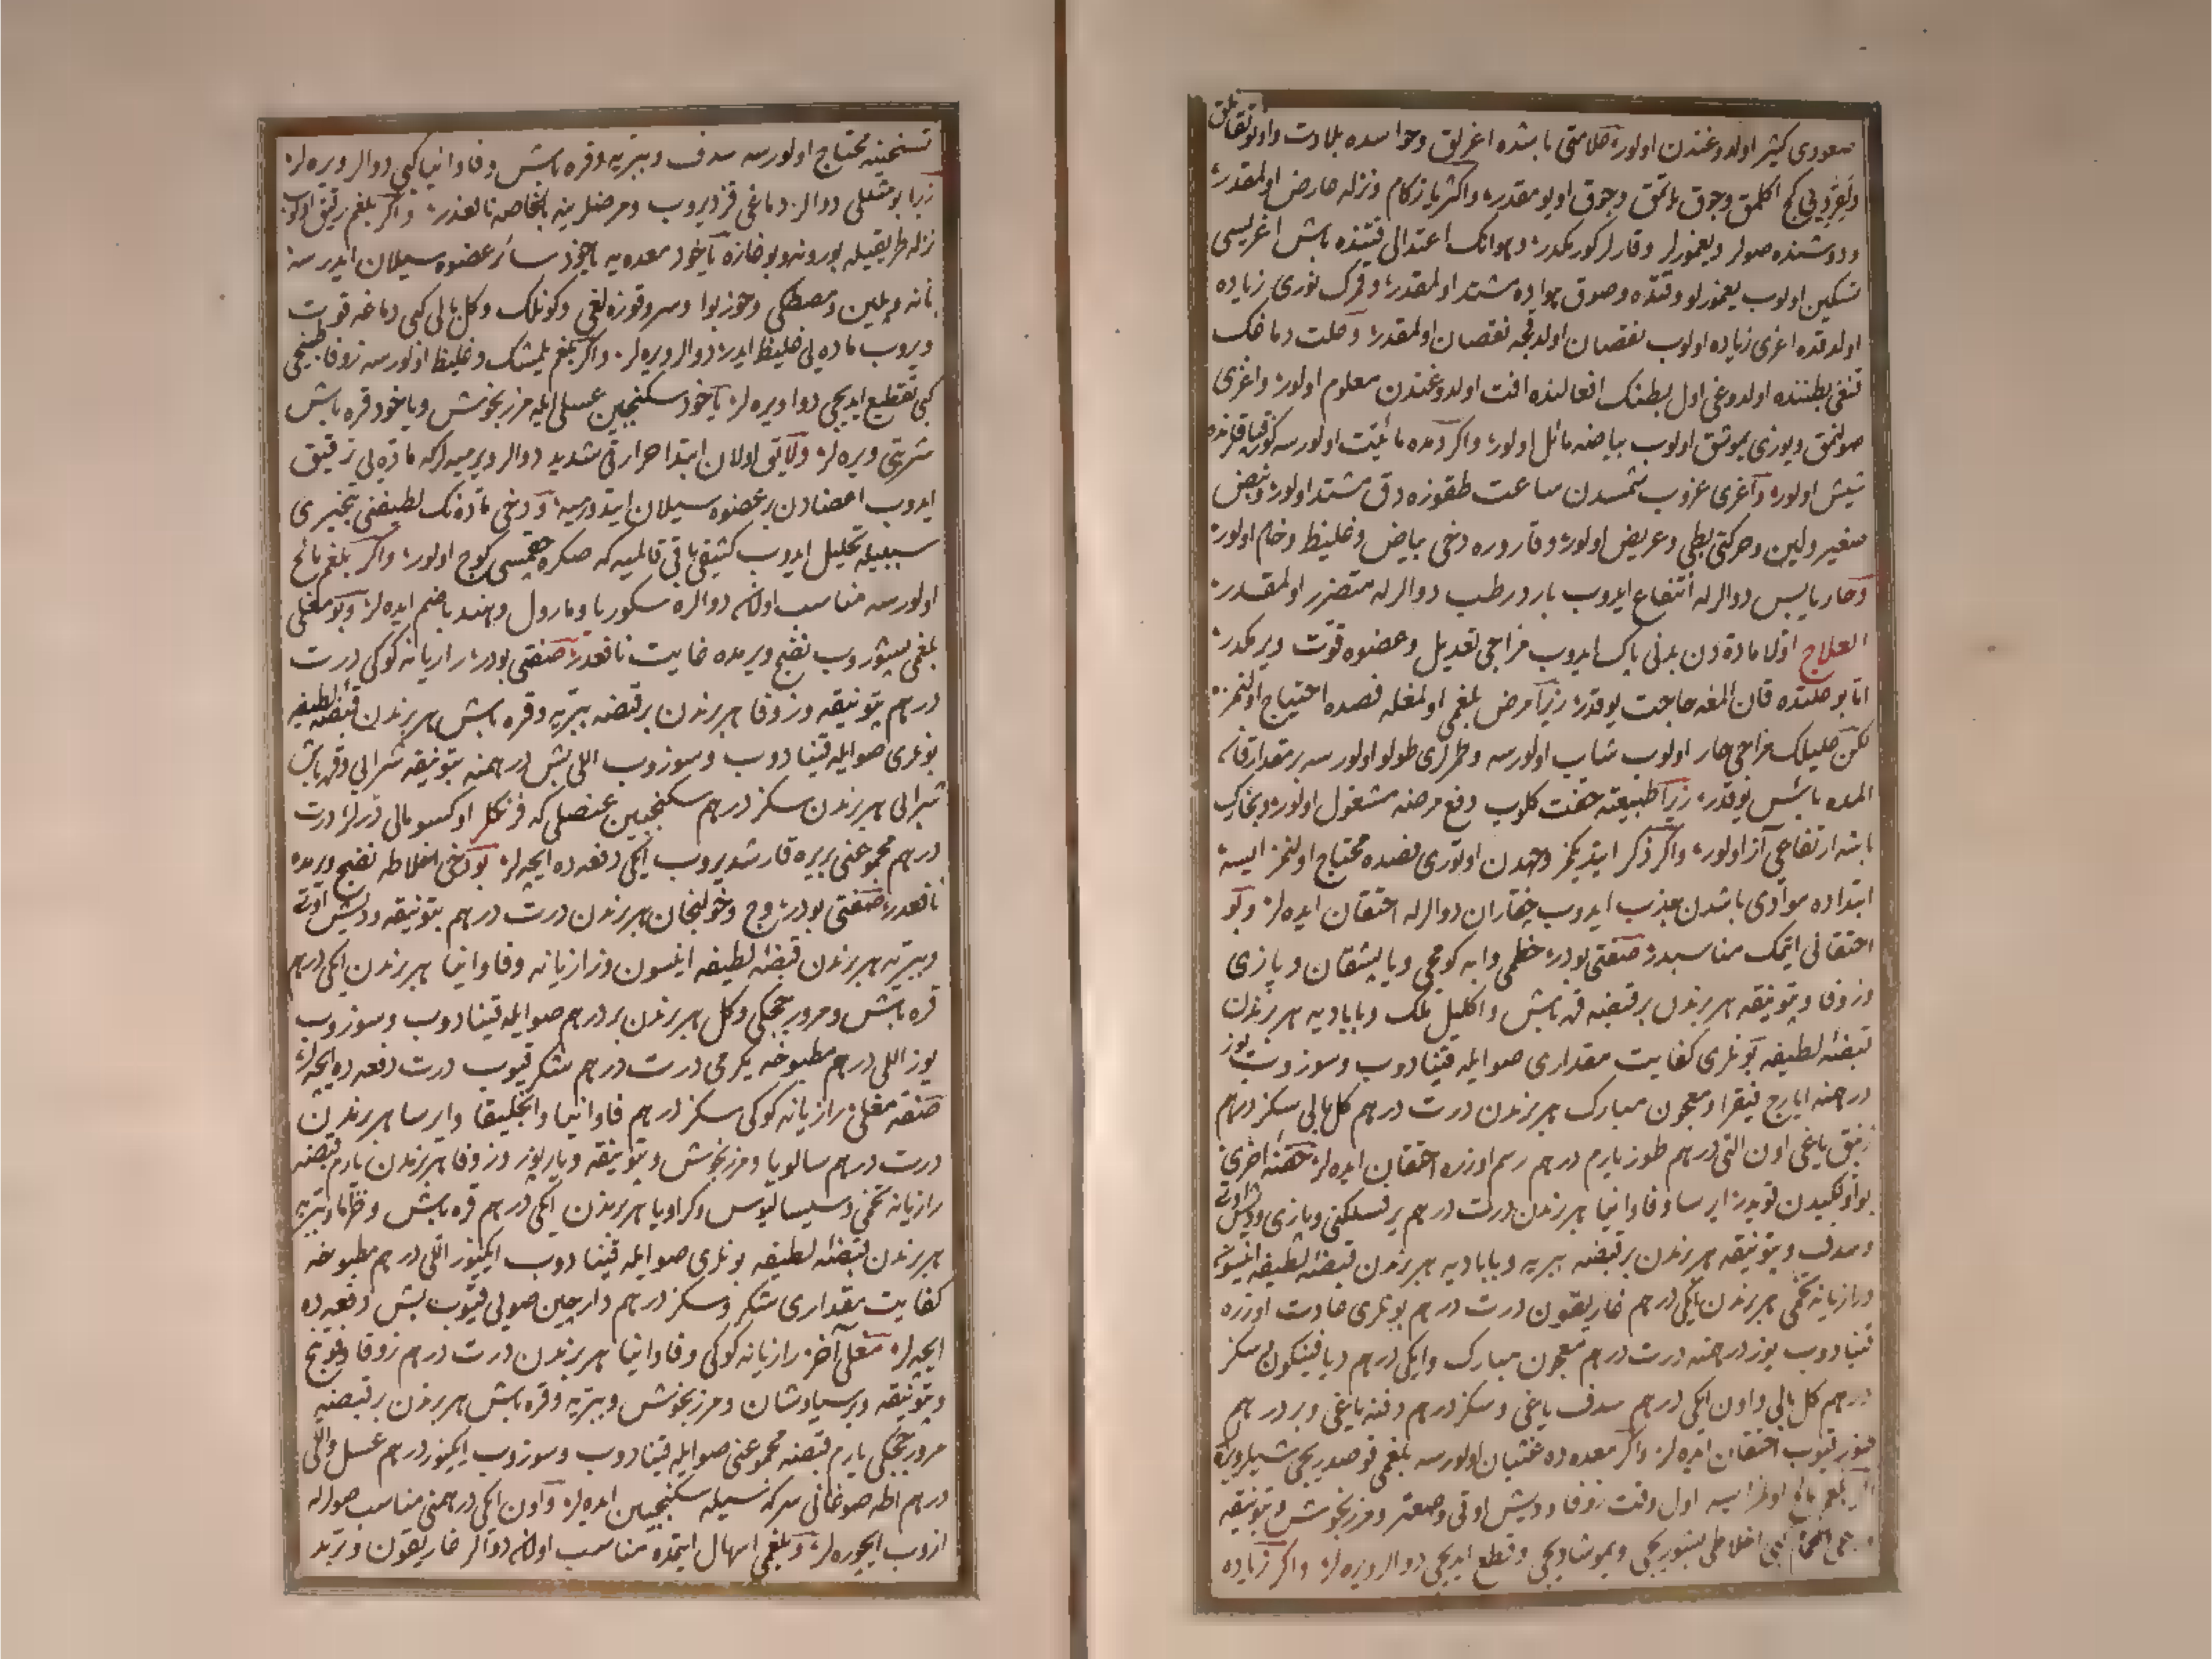 صعودی کثیر اولدوغندن اولور علامتی باشده اغرلق وحواسده بلادت واویوقلامق
ودوشنده صولر ویغمورلر وقارلر کورمکدر وهوانک اعتدالی وقتنده باش اغریسی
تسکین اولوب یغمورلو وقتده وصوق هواده مشتد اولمقدر وقمرک نوری زیاده
اولدقده اغری زیاده اولوب نقصان اولدقجه نقصان اولمقدر وعلت دماغک
بطننده اولدوغی اول بطنک افعالنده افت اولدوغندن معلوم اولور واغری
صولمق ویوزی یومشق اولوب بیاضه مائل اولور واکر دمده مائیت اولورسه کوز قپاقلرنده
شیش اولور واغری غروب شمسدن ساعت طقوزه دق مشتد اولور ونبض
صغیر ولین وحرکتی بطی وعریض اولور وقاروره دخی بیاض وغلیظ وخام اولور
وحار یابس دوالرله انتفاع ایدوب بارد رطب دوالرله متضرر اولمقدر
العلاج اولا ماده دن بدنی پاک ایدوب مزاجی تعدیل وعضوه قوت ویرمکدر
اما بو علتده قان المغه حاجت یوقدر زیرا مرض بلغمی اولمغله فصده احتیاج اولنمز
لکن علیلک مزاجی حار اولوب شاب اولورسه وطمرلری طولو اولورسه بر مقدار قان
المده بائس یوقدر زیرا طبیعته خفت کلوب دفع مرضه مشغول اولور وبخارک
باشه ارتفاعی از اولور واکر ذکر ایتدیکمز وجهدن اوتوری فصده محتاج اولنمز ایسه
ابتداده موادی باشدن جذب ایدوب چقاران دوالرله احتقان ایده لر وبو
احتقانی ایتمک مناسبدر صنعتی بودر خطمی وابه کومجی ویاپشقان وپازی
وزوفا وبتونیقه هر برندن بر قبضه قره باش واکلیل ملک وبابادیه هر برندن
قبضه لطیفه بونلری کفایت مقداری صو ایله قینادوب وسوزوب یوز
درهمنه ایارج فیقرا ومعجون مبارک هر برندن درت درهم کل بالی سکز درهم
زنبق یاغی اون التی درهم طوز یارم درهم رسم اوزره احتقان ایده لر حقنه اخری
بو اولکیدن قویدر ایرسا وفاوانیا هر برندن درت درهم وپازی
وسدف وبتونیقه هر برندن بر قبضه ببریه وبابادیه هر برندن قبضه لطیفه انیسون
ورازیانه تخمی هر برندن ایکی درهم غاریقون درت درهم بونلری عادت اوزره
قینادوب یوز درهمنه درت درهم معجون مبارک وایکی درهم دیافنیکون سکز
درهم کل بالی واون ایکی درهم سدف یاغی وسکز درهم دفنه یاغی وبر درهم
طوز قیوب احتقان ایده لر واکر معده ده غثیان اولورسه بلغمی قوصدریجی شیلر ویره
اول وقت زوفا ودیش اوتی وصعتر ومرزنجوش وبتونیقه
اخلاطی بشوریجی ویومشادیجی وقطع ایدیجی دوالر ویره لر واکر زیاده
تسخینه محتاج اولورسه سدف وببریه وقره باش وفاوانیا کبی دوالر ویره لر
زیرا بو مثللی دوالر دماغی قزدیروب ومرضلرینه بالخاصه نافعدر واکر بلغم رقیق اولوب
نزله طریقیله بورونه وبوغازه یاخود معده یه یاخود سائر عضوه سیلان ایدرسه
ومصطکی وجوز بوا وسرو قوزه لغی وکونلک وکل بالی کبی دماغه قوت
ویروب ماده یی غلیظ ایدر دوالر ویره لر واکر بلغم یلمشک وغلیظ اولورسه زوفا
کبی تقطیع ایدیجی دوا ویره لر یاخود سکنجبین عسلی ایله مرزنجوش ویاخود قره باش
شربتی ویره لر ولایق اولان ابتدا حرارتی شدید دوالر ویرمیه لرکه ماده یی ترقیق
ایدوب اعضادن بر عضوه سیلان ایتدورمیه ودخی ماده نک لطیفنی تبخیری
سببیله تحلیل ایدوب کثیفی باقی قالمیه که صکره چقمسی کوج اولور واکر بلغم مالح
اولورسه مناسب اولان دوالره سکوریا ومارول وهندبا ضم ایده لر وبو مغلی
بلغمی بشوروب نضج ویرمده غایت نافعدر صنعتی بودر رازیانه کوکی درت
درهم بتونیقه وزوفا هر برندن بر قبضه ببریه وقره باش هر برندن قبضه لطیفه
بونلری صو ایله قینادوب وسوزوب اللی بش درهمنه بتونیقه شرابی وقره باش
شرابی هر برندن سکز درهم سکنجبین عنصلی که فرنکلر اوکسومالی دیرلر درت
درهم مجموعنی بر یره قارشدیروب ایکی دفعه ده ایچه لر بو دخی اخلاطه نضج ویرمده
نافعدر صنعتی بودر وج وخولنجان هر برندن درت درهم بتونیقه ودیش اوتی
وببریه هر برندن قبضه لطیفه انیسون ورازیانه وفاوانیا هر برندن ایکی درهم
قره باش ومرور چچکی وکل هر برندن بر درهم صو ایله قینادوب وسوزوب
یوز اللی درهم مطبوخه یکرمی درت درهم شکر قیوب درت دفعه ده ایچه لر
صنعه مغلی رازیانه کوکی سکز درهم فاوانیا وانجلیقا وایرسا هر برندن
درت درهم سالویا ومرزنجوش وبتونیقه ویارپوز وزوفا هر برندن یارم قبضه
رازیانه تخمی وسیسالیوس وکراویا هر برندن ایکی درهم قره باش
هر برندن قبضه لطیفه بونلری صو ایله قینادوب ایکیوز اللی درهم مطبوخه
کفایت مقداری شکر وسکز درهم دارچین صویی قیوب بش دفعه ده
ایچه لر مغلی آخر رازیانه کوکی وفاوانیا هر برندن درت درهم زوفا
وبتونیقه وپرسیاوشان ومرزنجوش وببریه وقره باش هر برندن بر قبضه
مرور چچکی یارم قبضه مجموعنی صو ایله قینادوب وسوزوب ایکیوز درهم عسل واللی
درهم اطه صوغانی سرکه سیله سکنجبین ایده لر واون ایکی درهمنی مناسب صولرله
ازوب ایچوره لر وبلغمی اسهال ایتمده مناسب اولان دوالر غاریقون وتربد